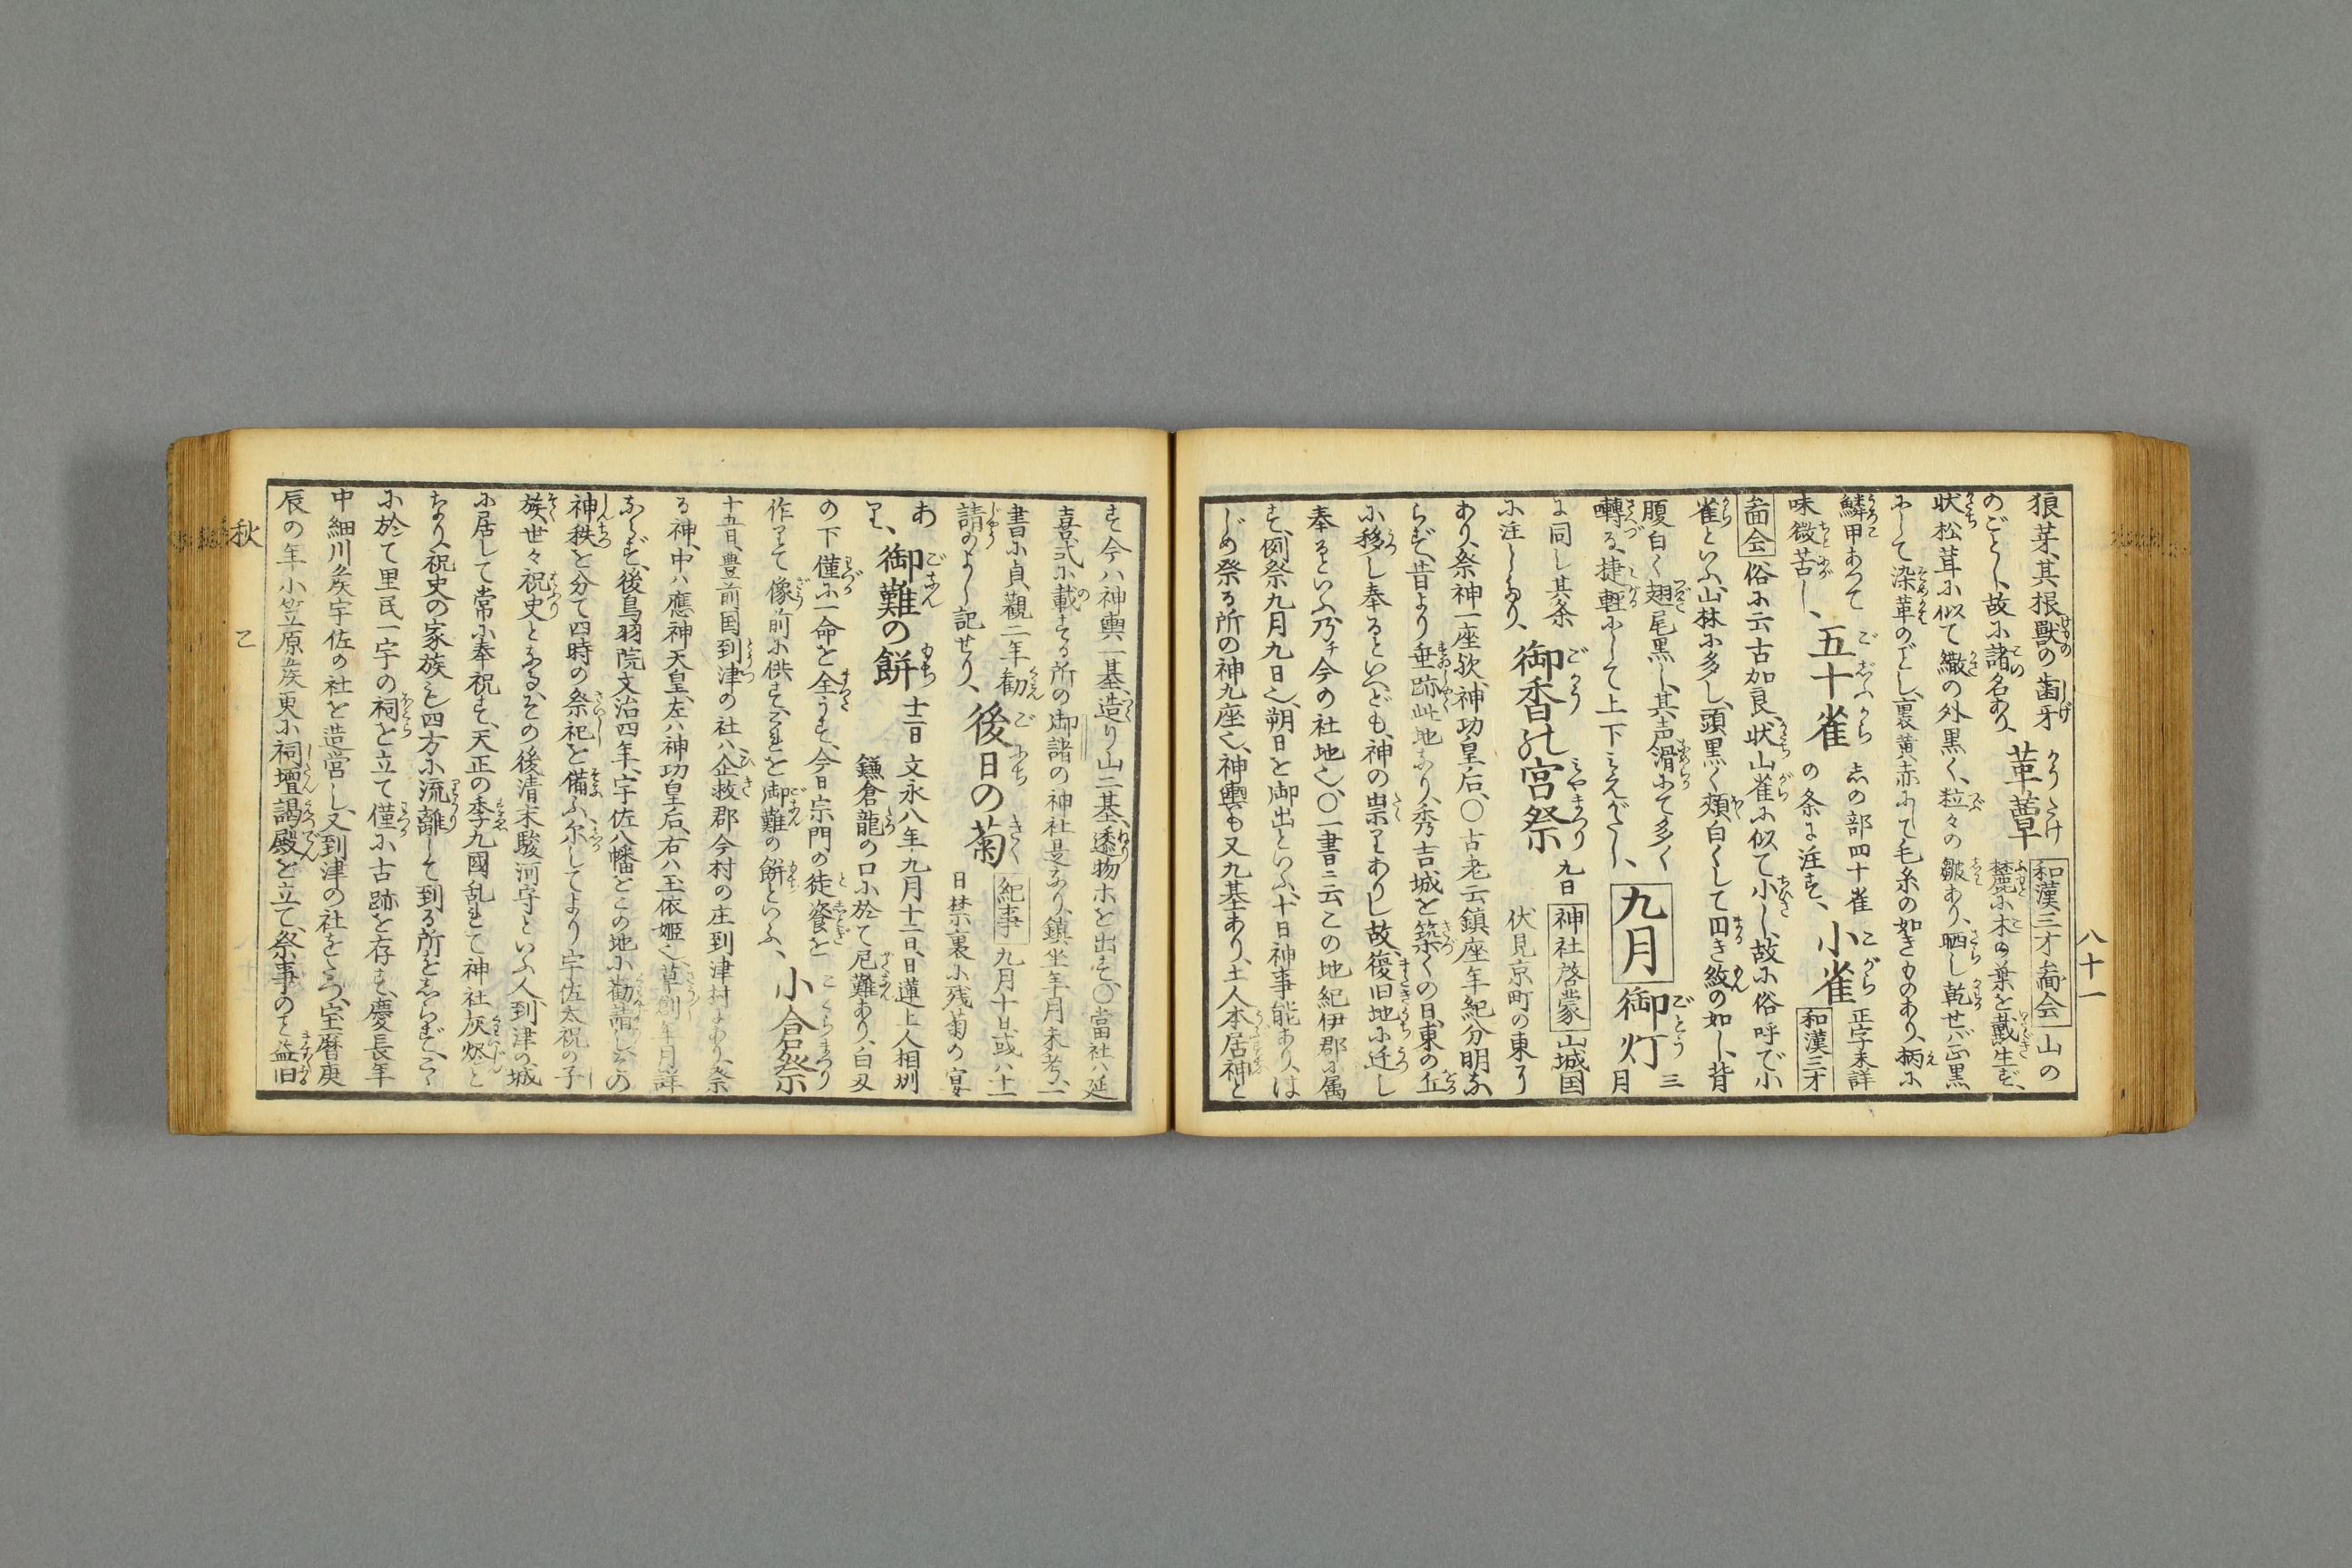 八十一
狼芽、其根獣の歯牙
のごとし、故に諸名あり、
革蕈
和漢三才啚会 山の
麓に木の葉を戴き生ず、
状松茸に似て繖の外黒く、粒々の皺あり、晒し乾せバ正黒
にして染革のごとし、裏黄赤にて毛糸の如きものあり、柄に
鱗甲あつて
味微苦し、
五十雀
しの部四十雀
の条に注す、
小雀
正字未詳
和漢三才
啚会 俗に云古加良、状山雀に似て小し、故に俗呼で小
雀といふ、山林に多し、頭黒く頬白くして円き紋の如し、背
腹白く翅尾黒し、其声滑にて多く
囀る、捷軽にして上下さえがたし、
九月
御灯
三月
に同し其条
に注しゐり、
御香の宮祭
九日 神社啓蒙 山城国
伏見京町の東に
あり、祭神一座欤、神功皇后、〇古老云鎮座年紀分明な
らず、昔より垂跡此地なり、秀吉城を築くの日、東の丘
に移し奉るといへども、神の祟ありし故、復旧地に迁し
奉るといふ、乃チ今の社地也、〇一書ニ云この地紀伊郡に属
す、例祭九月九日也、朔日を御出といふ、十日神事能あり、は
じめ祭る所の神九座也、神輿も又九基あり、土人本居神と
す今ハ神輿一基、造り山二基、邌物ホを出す、〇當社ハ延
喜式に載する所の御諸の神社是なり、鎮坐年月未考、一
書に貞觀二年勧
請のよし記せり、
後日の菊
紀事 九月十日或ハ十一
日禁裏に残菊の宴
あ
り、
御難の餅
十二日 文永八年九月十二日、日蓮上人相刕
鎌倉龍の口に於て厄難あり、白刄
の下僅に一命を全うす、今日宗門の徒餈を
作りて像前に供す、これを御難の餅といふ、
小倉祭
十五日、豊前国到津の社ハ企救郡今村の庄到津村にあり、祭
る神、中ハ應神天皇、左ハ神功皇后、右ハ玉依姫也、草創年月詳
ならず、後鳥羽院文治四年、宇佐八幡をこの地に勧請し、その
神秩を分て四時の祭祀を備ふ、尓してより宇佐太祝の子
族、世々祝史となる、その後清末駿河守といふ人、到津の城
に居して常に奉祝す、天正の季九國乱れて神社灰燼と
なり、祝史の家族も四方に流離して到る所をしらず、こゝ
に於て里民一宇の祠を立て僅に古跡を存す、慶長年
中細川矦宇佐の社を造営し、又到津の社をたつ、宝暦庚
辰の年小笠原矦更に祠壇謁殿を立て、祭事のこと益旧
秋 乙